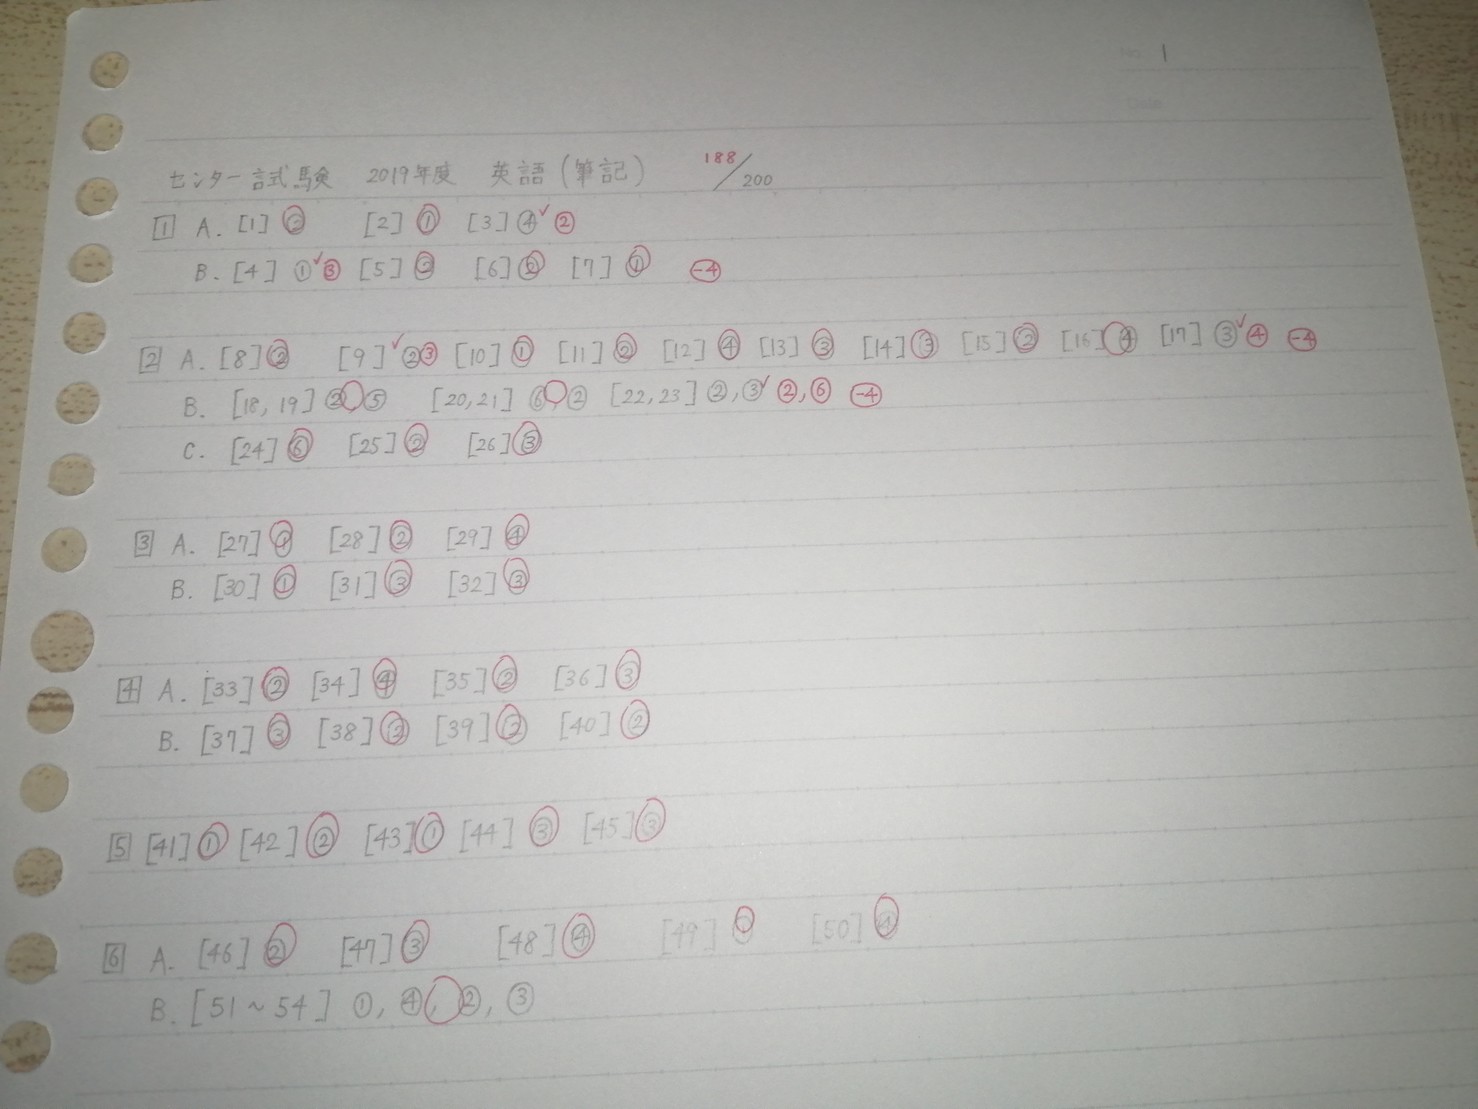 No. 1
Date
センター試験 2019年度 英語(筆記) 188/200
1 A. [1] ② [2] ① [3] ④✓ ②
B. [4] ①✓③ [5] ② [6] ② [7] ① -4
2 A. [8] ② [9] ✓②③ [10] ① [11] ② [12] ④ [13] ③ [14] ③ [15] ② [16] ④ [17] ③✓④ -4
B. [18, 19] ②, ⑤ [20, 21] ⑥, ② [22, 23] ②, ③✓ ②, ⑥ -4
C. [24] ⑥ [25] ② [26] ③
3 A. [27] ① [28] ② [29] ④
B. [30] ① [31] ③ [32] ③
4 A. [33] ② [34] ④ [35] ② [36] ③
B. [37] ③ [38] [39] [40] ②
5 [41] ① [42] ② [43] ① [44] ③ [45] ③
6 A. [46] ② [47] ③ [48] ④ [49] [50] ④
B. [51 ~ 54] ①, ④, ②, ③